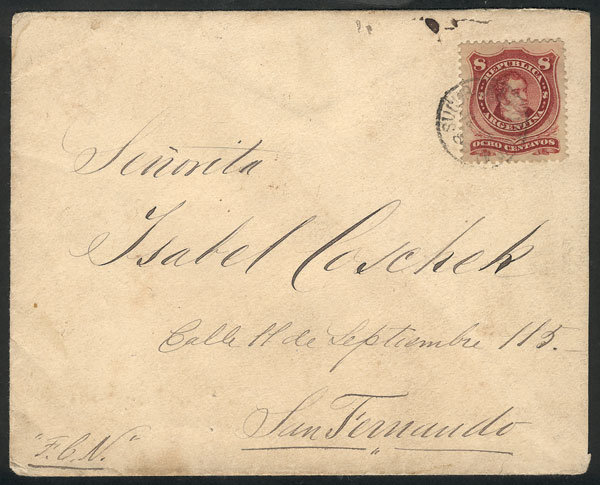 8 REPUBLICA 8
8 8
ARGENTINA
OCHO CENTAVOS
Señorita
Isabel Coschek
Calle 11 de Septiembre 115.
San Fernando
"F.C.N."